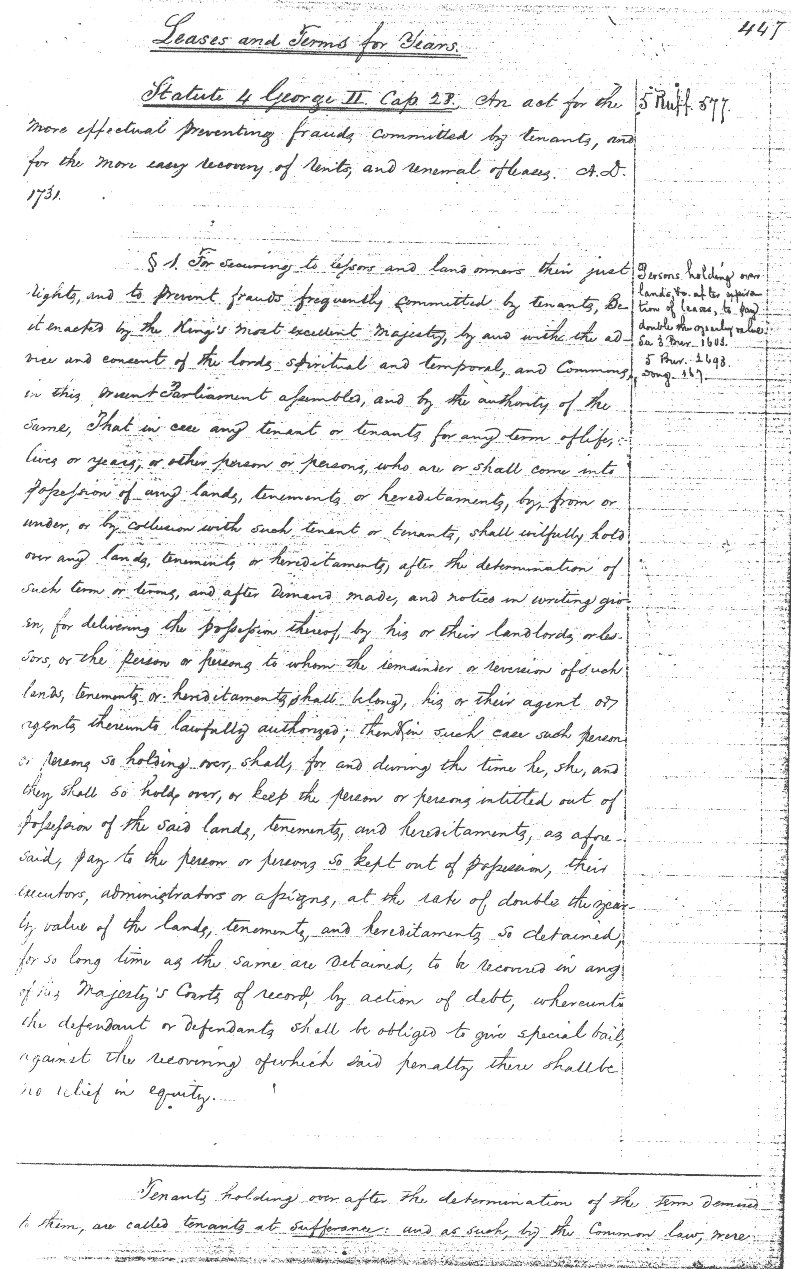 447
Leases and Terms for Years.
Statute 4 George II. Cap. 28. An act for the
more effectual preventing frauds committed by tenants, and
for the more easy recovery of rents, and renewal of leases. A.D.
1731.
5 Ruff. 577.
§ 1. For securing to lessors and land owners their just
rights, and to prevent frauds frequently committed by tenants, Be
it enacted by the King's most excellent Majesty, by and with the ad-
vice and consent of the lords spiritual and temporal, and Commons,
in this present Parliament assembled, and by the authority of the
same, That in case any tenant or tenants for any term of life,
lives or years, or other person or persons, who are or shall come into
possession of any lands, tenements or hereditaments, by, from or
under, or by collusion with such tenant or tenants, shall wilfully hold
over any lands, tenements or hereditaments, after the determination of
such term or terms, and after demand made, and notice in writing giv-
en, for delivering the possession thereof, by his or their landlords or les-
sors, or the person or persons to whom the remainder or reversion of such
lands, tenements or hereditaments shall belong, his or their agent or
agents thereunto lawfully authorized; then & in such case such person
or persons so holding over, shall, for and during the time he, she, and
they shall so hold over, or keep the person or persons intitled out of
possession of the said lands, tenements, and hereditaments, as afore-
said, pay to the person or persons so kept out of possession, their
executors, administrators or assigns, at the rate of double the year-
ly value of the lands, tenements, and hereditaments so detained,
for so long time as the same are detained, to be recovered in any
of his Majesty's Courts of record, by action of debt, whereunto
the defendant or defendants shall be obliged to give special bail,
against the recovering of which said penalty there shall be
no relief in equity.
Persons holding over
lands, &c. after expira-
tion of leases, to pay
double the yearly value.
3 Bur. 1603.
5 Bur. 2698.
167.
Tenants holding over after the determination of the term demised
to them, are called tenants at sufferance: and as such, by the Common law, were